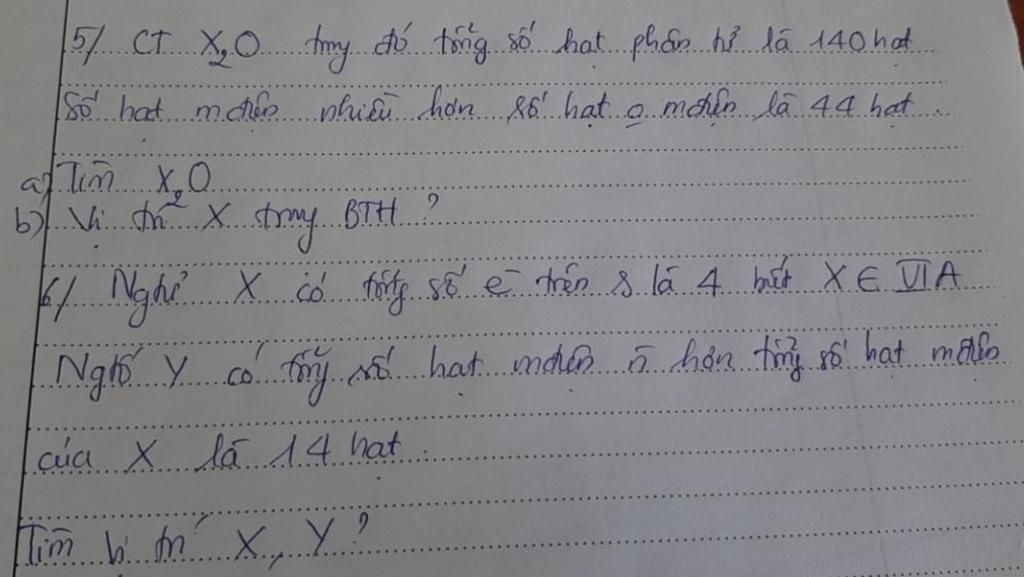 5/ CT X₂O trng đó tổng số hạt phân tử là 140 hạt
Số hạt mđiện nhiều hơn số hạt o mđiện là 44 hạt.
a) Tìm X₂O
b) Vị trí X trng BTH ?
6/ Ngtử X có tổng số e trên s là 4 biết X ∈ VIA
Ngtố Y có tổng số hạt mđiện n̄ hơn tổng số hạt mđiện
của X là 14 hạt.
Tìm vị trí X, Y ?